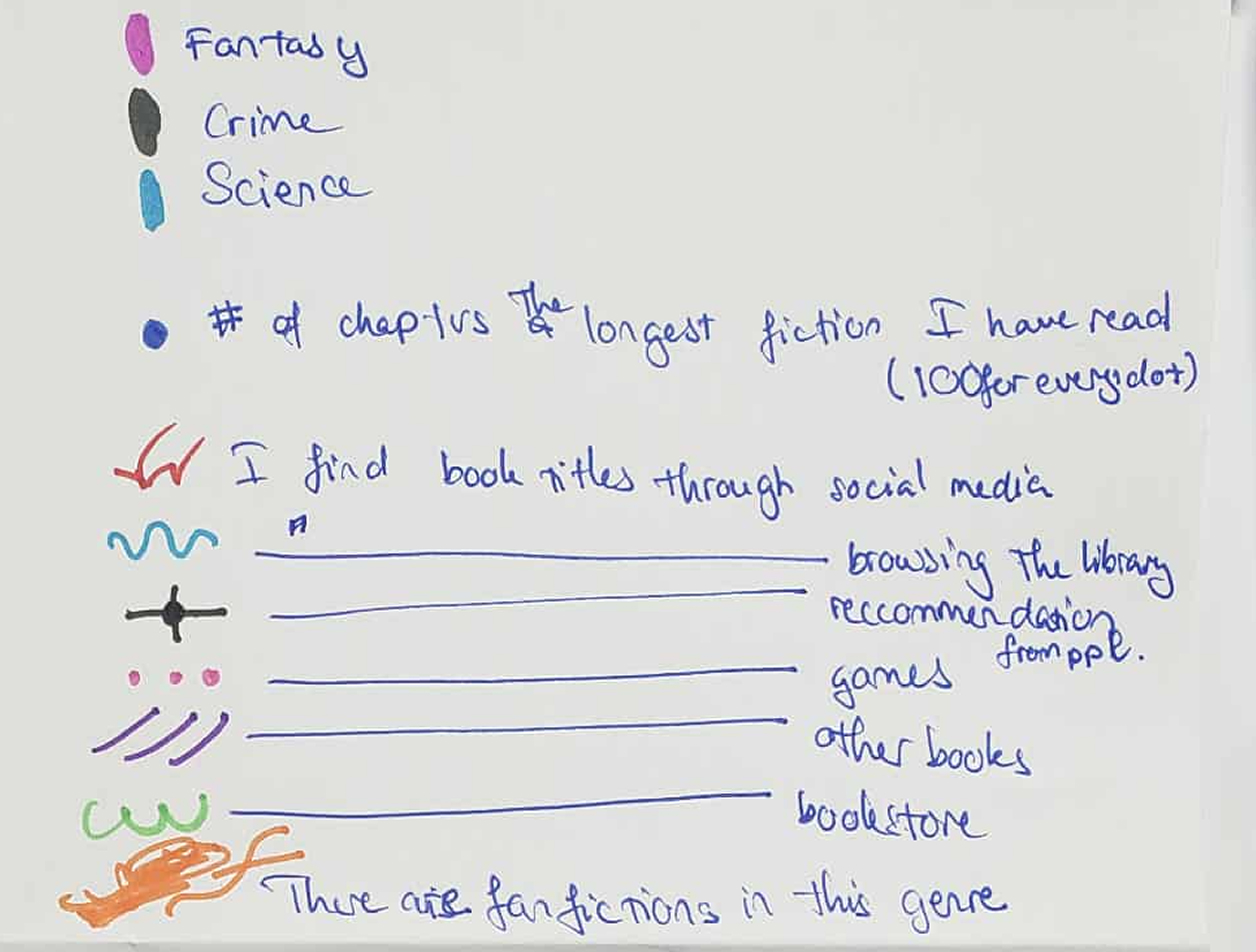 Fantasy
Crime
Science
# of chapters The longest fiction I have read
(100 for every dot)
I find book titles through social media
browsing the library
reccommendation
from ppl.
games
other books
bookstore
There are fanfictions in this genre